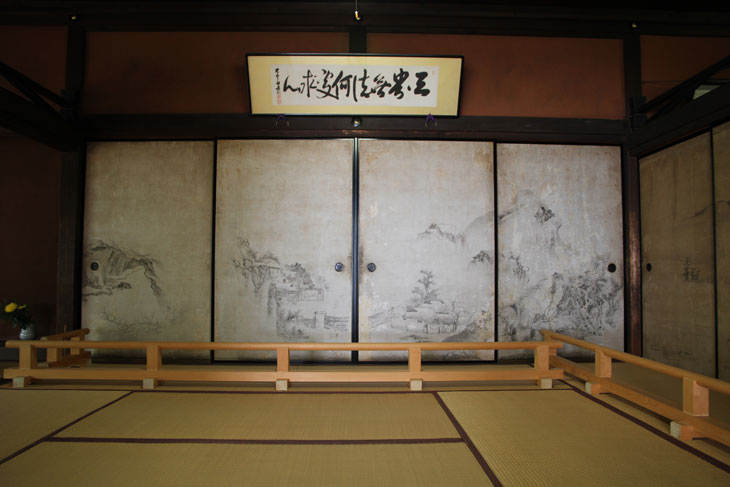 三界無法何處求心